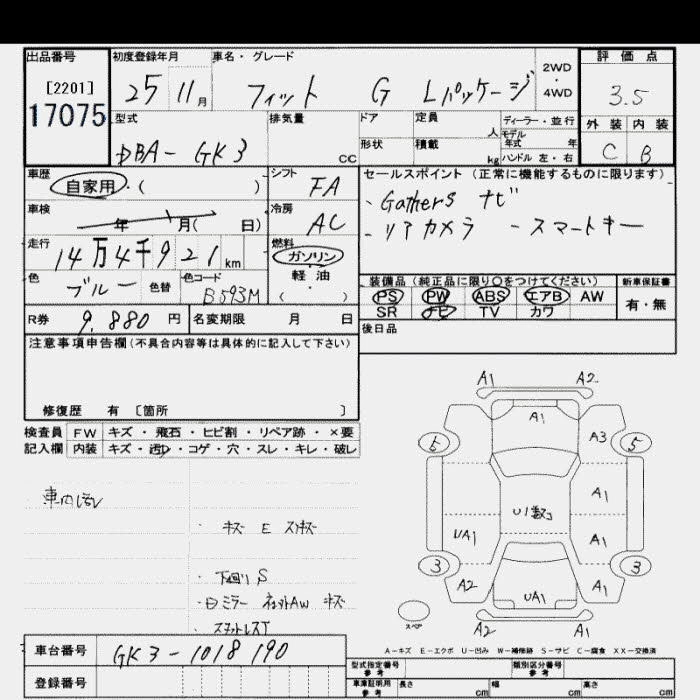 出品番号 初度登録年月 車名・グレード 評価点
[2201] 25 11月 フィット G Lパッケージ 2WD・4WD 3.5
17075 型式 排気量 ドア 定員 人 ディーラー・並行 外装 内装
DBA-GK3 CC 形状 積載 kg モデル年式 年 ハンドル 左・右 C B
車歴 自家用・( ) シフト FA セールスポイント(正常に機能するものに限ります)
車検 年 月( 日) 冷房 AC ・Gathers ナビ
・リアカメラ -スマートキー
走行 14万4千921km 燃料 ガソリン 軽油 ( )
色 ブルー 色替 色コード B593M 装備品(純正品に限り○をつけてください) 新車保証書
PS PW ABS エアB AW 有・無
SR ナビ TV カワ
R券 9,880円 名変期限 月 日 後日品
注意事項申告欄(不具合内容等は具体的に記入して下さい)
修復歴 有 〔箇所 〕
検査員 FW キズ・飛石・ヒビ割・リペア跡・×要
記入欄 内装 キズ・汚れ・コゲ・穴・スレ・キレ・破レ
・キズ E スリキズ
・下廻りS
A1 A2
A1
6 A3 5
U1数コ A1
UA1 A1
3 3
A2 UA1 A1
スペア
A2 A1
A-キズ E-エクボ U-凹み W-補修跡 S-サビ C-腐食 XX-交換済
車台番号 GK3-1018190
登録番号
型式指定番号 参考 類別区分番号 参考
車庫証明用 参考 長さ cm 幅 cm 高さ cm